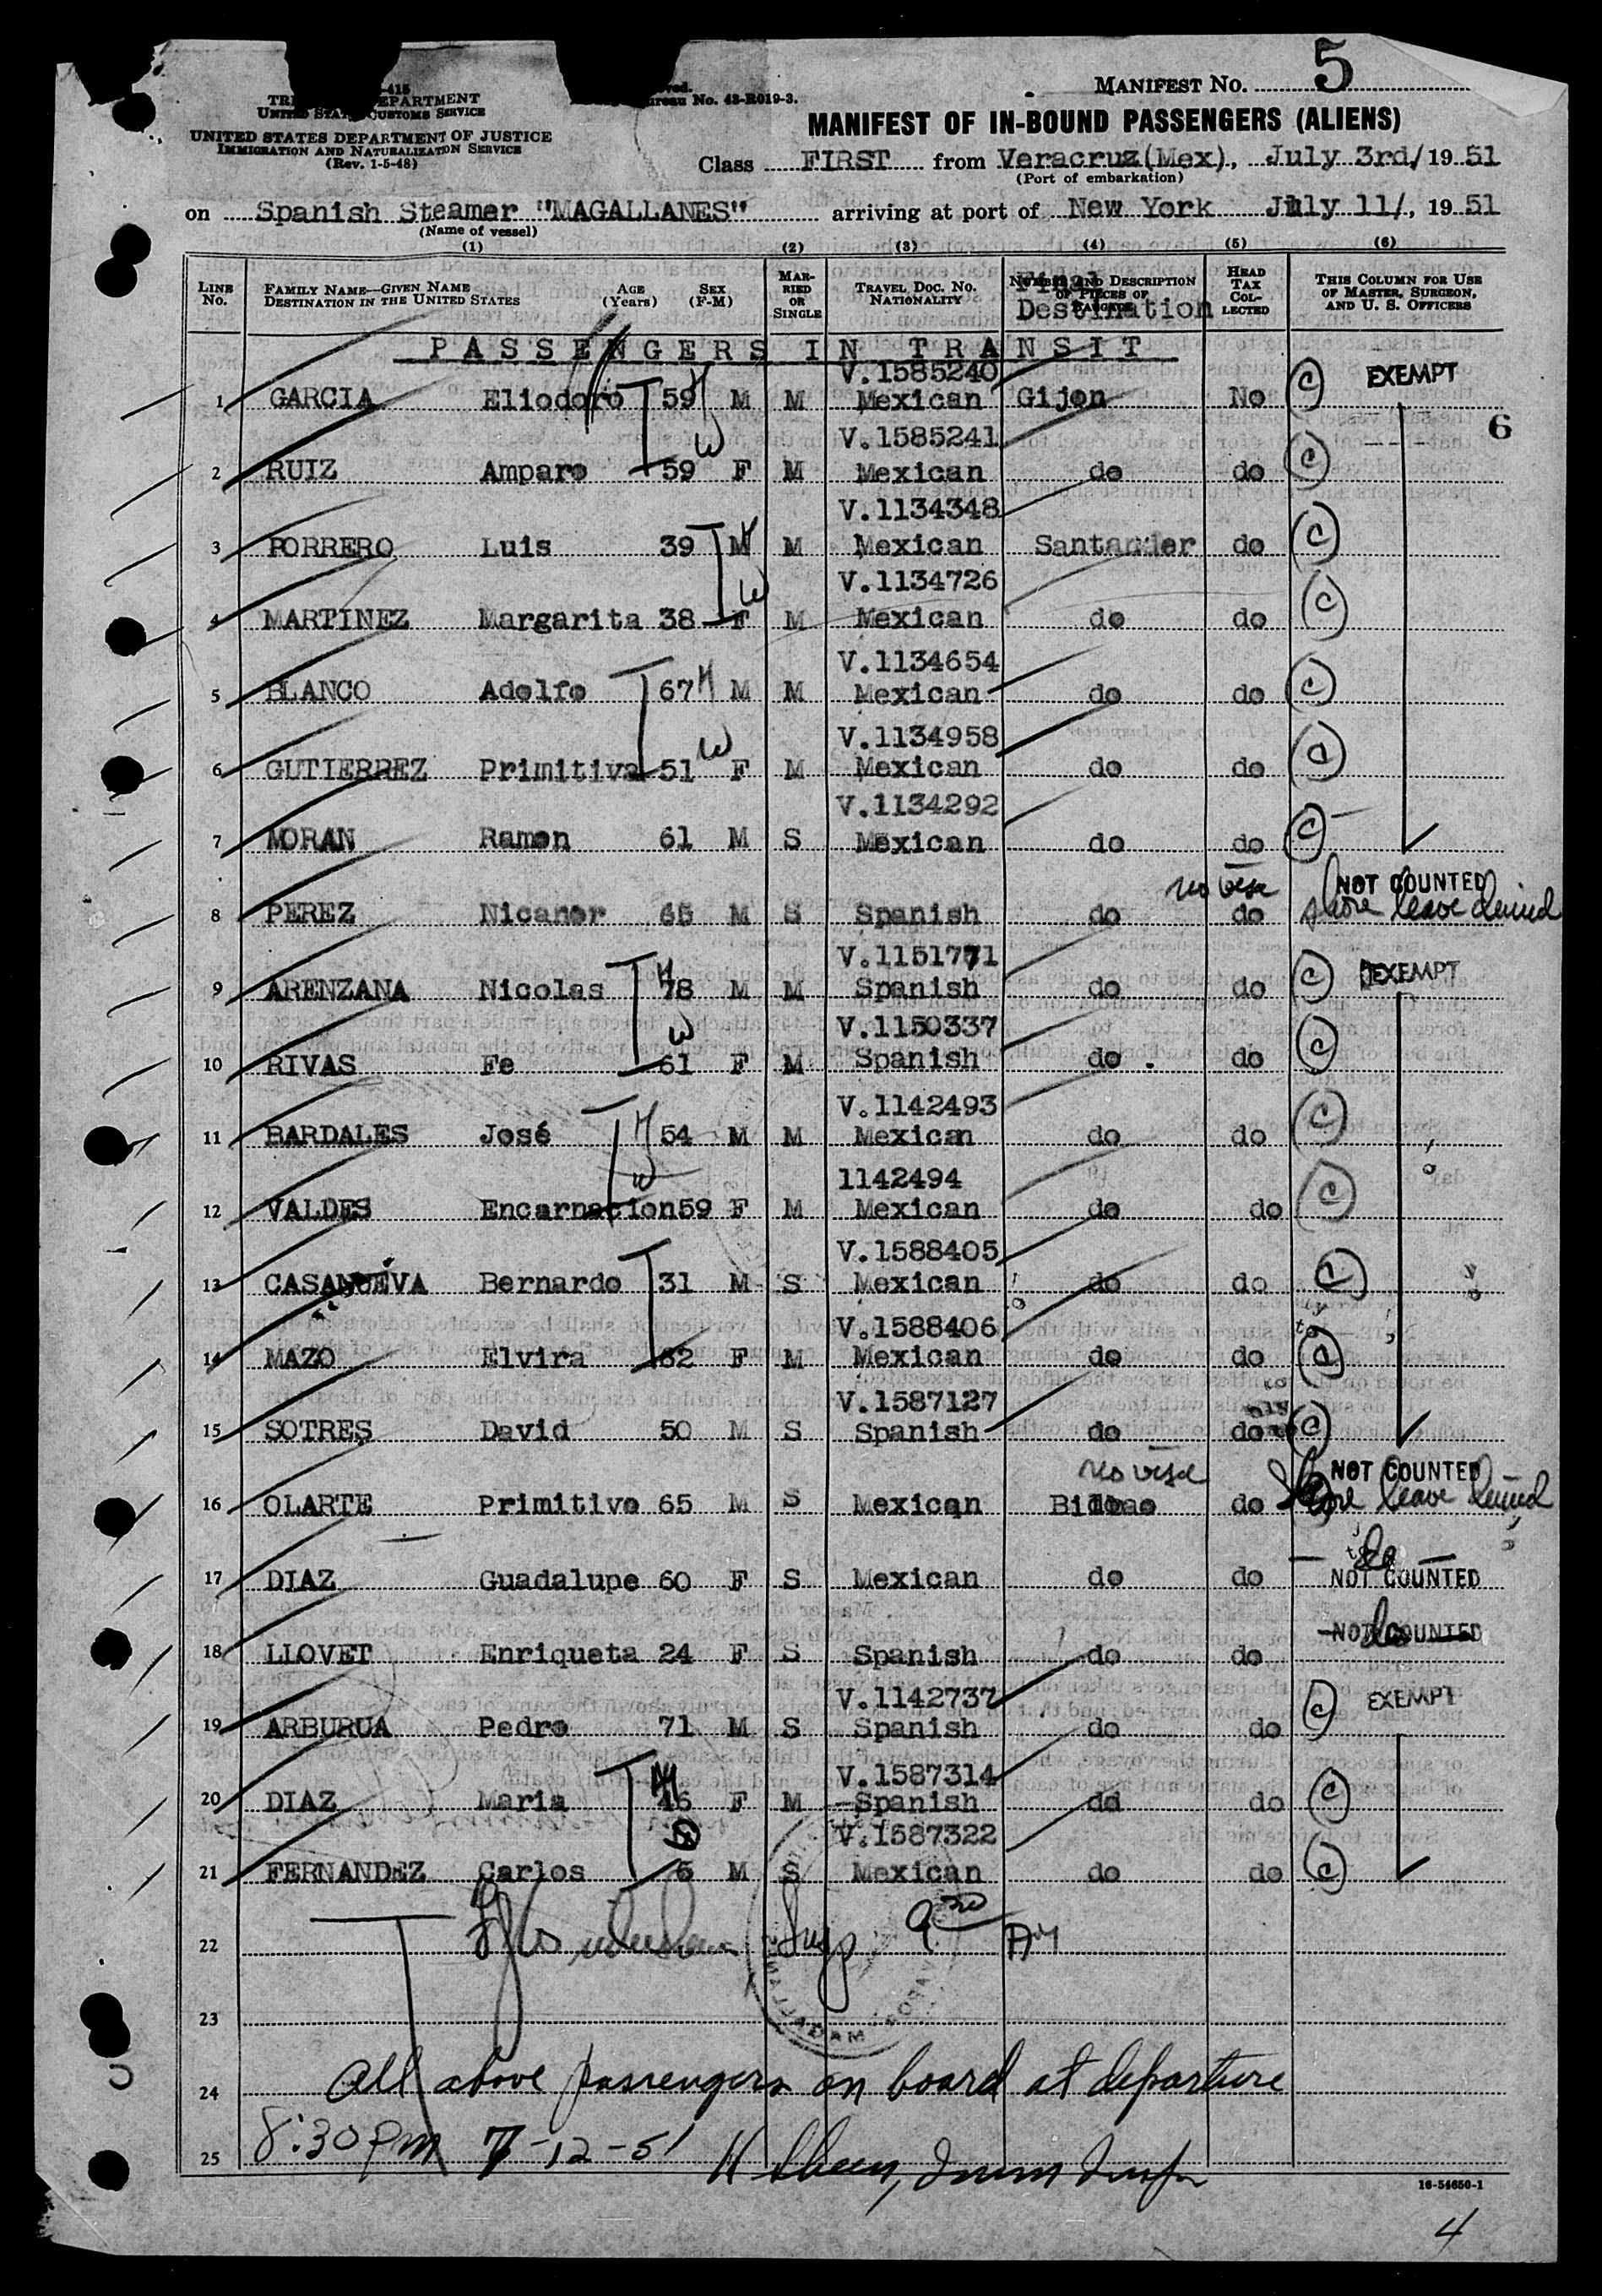 MANIFEST No. 5
-415
UNITED STATES CUSTOMS SERVICE
Bureau No. 43-R019-3.
UNITED STATES DEPARTMENT OF JUSTICE
IMMIGRATION AND NATURALIZATION SERVICE
(Rev. 1-5-48)
MANIFEST OF IN-BOUND PASSENGERS (ALIENS)
Class FIRST from Veracruz(Mex)., July 3rd/ 19 51
(Port of embarkation)
on Spanish Steamer "MAGALLANES" arriving at port of New York July 11/, 19 51
(Name of vessel)
(1) (2) (3) (4) (5) (6)
LINE No. FAMILY NAME—GIVEN NAME DESTINATION IN THE UNITED STATES AGE (Years) SEX (F-M) MARRIED OR SINGLE TRAVEL DOC. NO. NATIONALITY NUMBER AND DESCRIPTION OF PIECES OF BAGGAGE Final Destination HEAD TAX COLLECTED THIS COLUMN FOR USE OF MASTER, SURGEON, AND U. S. OFFICERS
PASSENGERS IN TRANSIT
V.1585240
1 GARCIA Eliodoro 59 H M M Mexican Gijon No C EXEMPT
6
V.1585241
2 RUIZ Amparo 59 W F M Mexican do do C
V.1134348
3 PORRERO Luis 39 M H M Mexican Santander do C
V.1134726
4 MARTINEZ Margarita 38 W F M Mexican do do C
V.1134654
5 BLANCO Adolfo 67 H M M Mexican do do C
V.1134958
6 GUTIERREZ Primitiva 51 W F M Mexican do do C
V.1134292
7 MORAN Ramon 61 M S Mexican do do C
no visa NOT COUNTED
8 PEREZ Nicanor 65 M S Spanish do do shore leave denied
V.1151771
9 ARENZANA Nicolas H 78 M M Spanish do do C EXEMPT
V.1150337
10 RIVAS Fe W 61 F M Spanish do do C
V.1142493
11 BARDALES José H 54 M M Mexican do do C
1142494
12 VALDES Encarnacion W 59 F M Mexican do do C
V.1588405
13 CASANUEVA Bernardo 31 M S Mexican do do C
V.1588406
14 MAZO Elvira 62 F M Mexican do do C
V.1587127
15 SOTRES David 50 M S Spanish do do C
no visa NOT COUNTED
16 OLARTE Primitivo 65 M S Mexican Bilbao do Shore leave denied
do
17 DIAZ Guadalupe 60 F S Mexican do do NOT COUNTED
NOT COUNTED do
18 LLOVET Enriqueta 24 F S Spanish do do
V.1142737
19 ARBURUA Pedro 71 M S Spanish do do C EXEMPT
V.1587314
20 DIAZ Maria 46 F M Spanish do do C
V.1587322
21 FERNANDEZ Carlos 5 M S Mexican do do C
22 Insp 9 30 AM
23
24 All above passengers on board at departure
25 8:30 PM 7-12-51 H Sheen, Imm Insp
16-54650-1
4